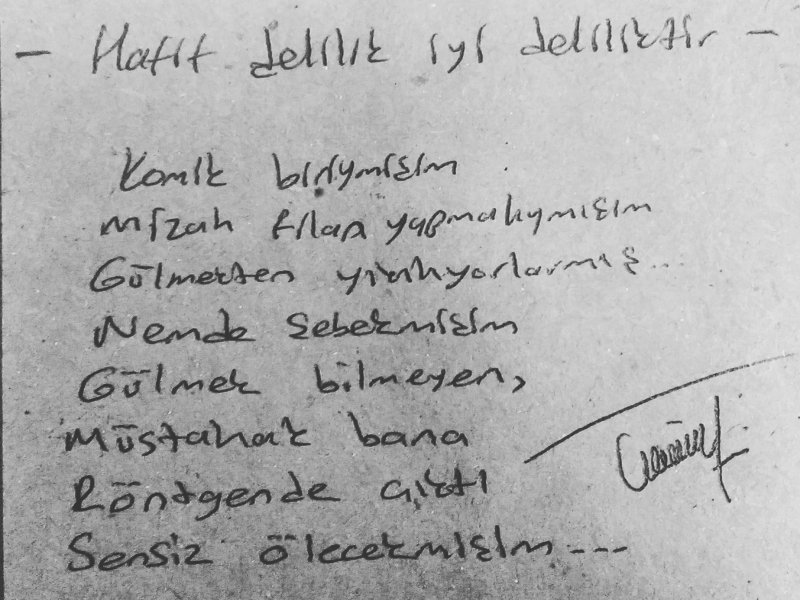 - Hafif delilik iyi deliliktir -
Komik biriymişim
mizah filan yapmalıymışım
Gülmekten yıkılıyorlarmış...
Nemde şebekmişim
Gülmek bilmeyen,
Müstahak bana
Röntgende çıktı
Sensiz ölecekmişim ---